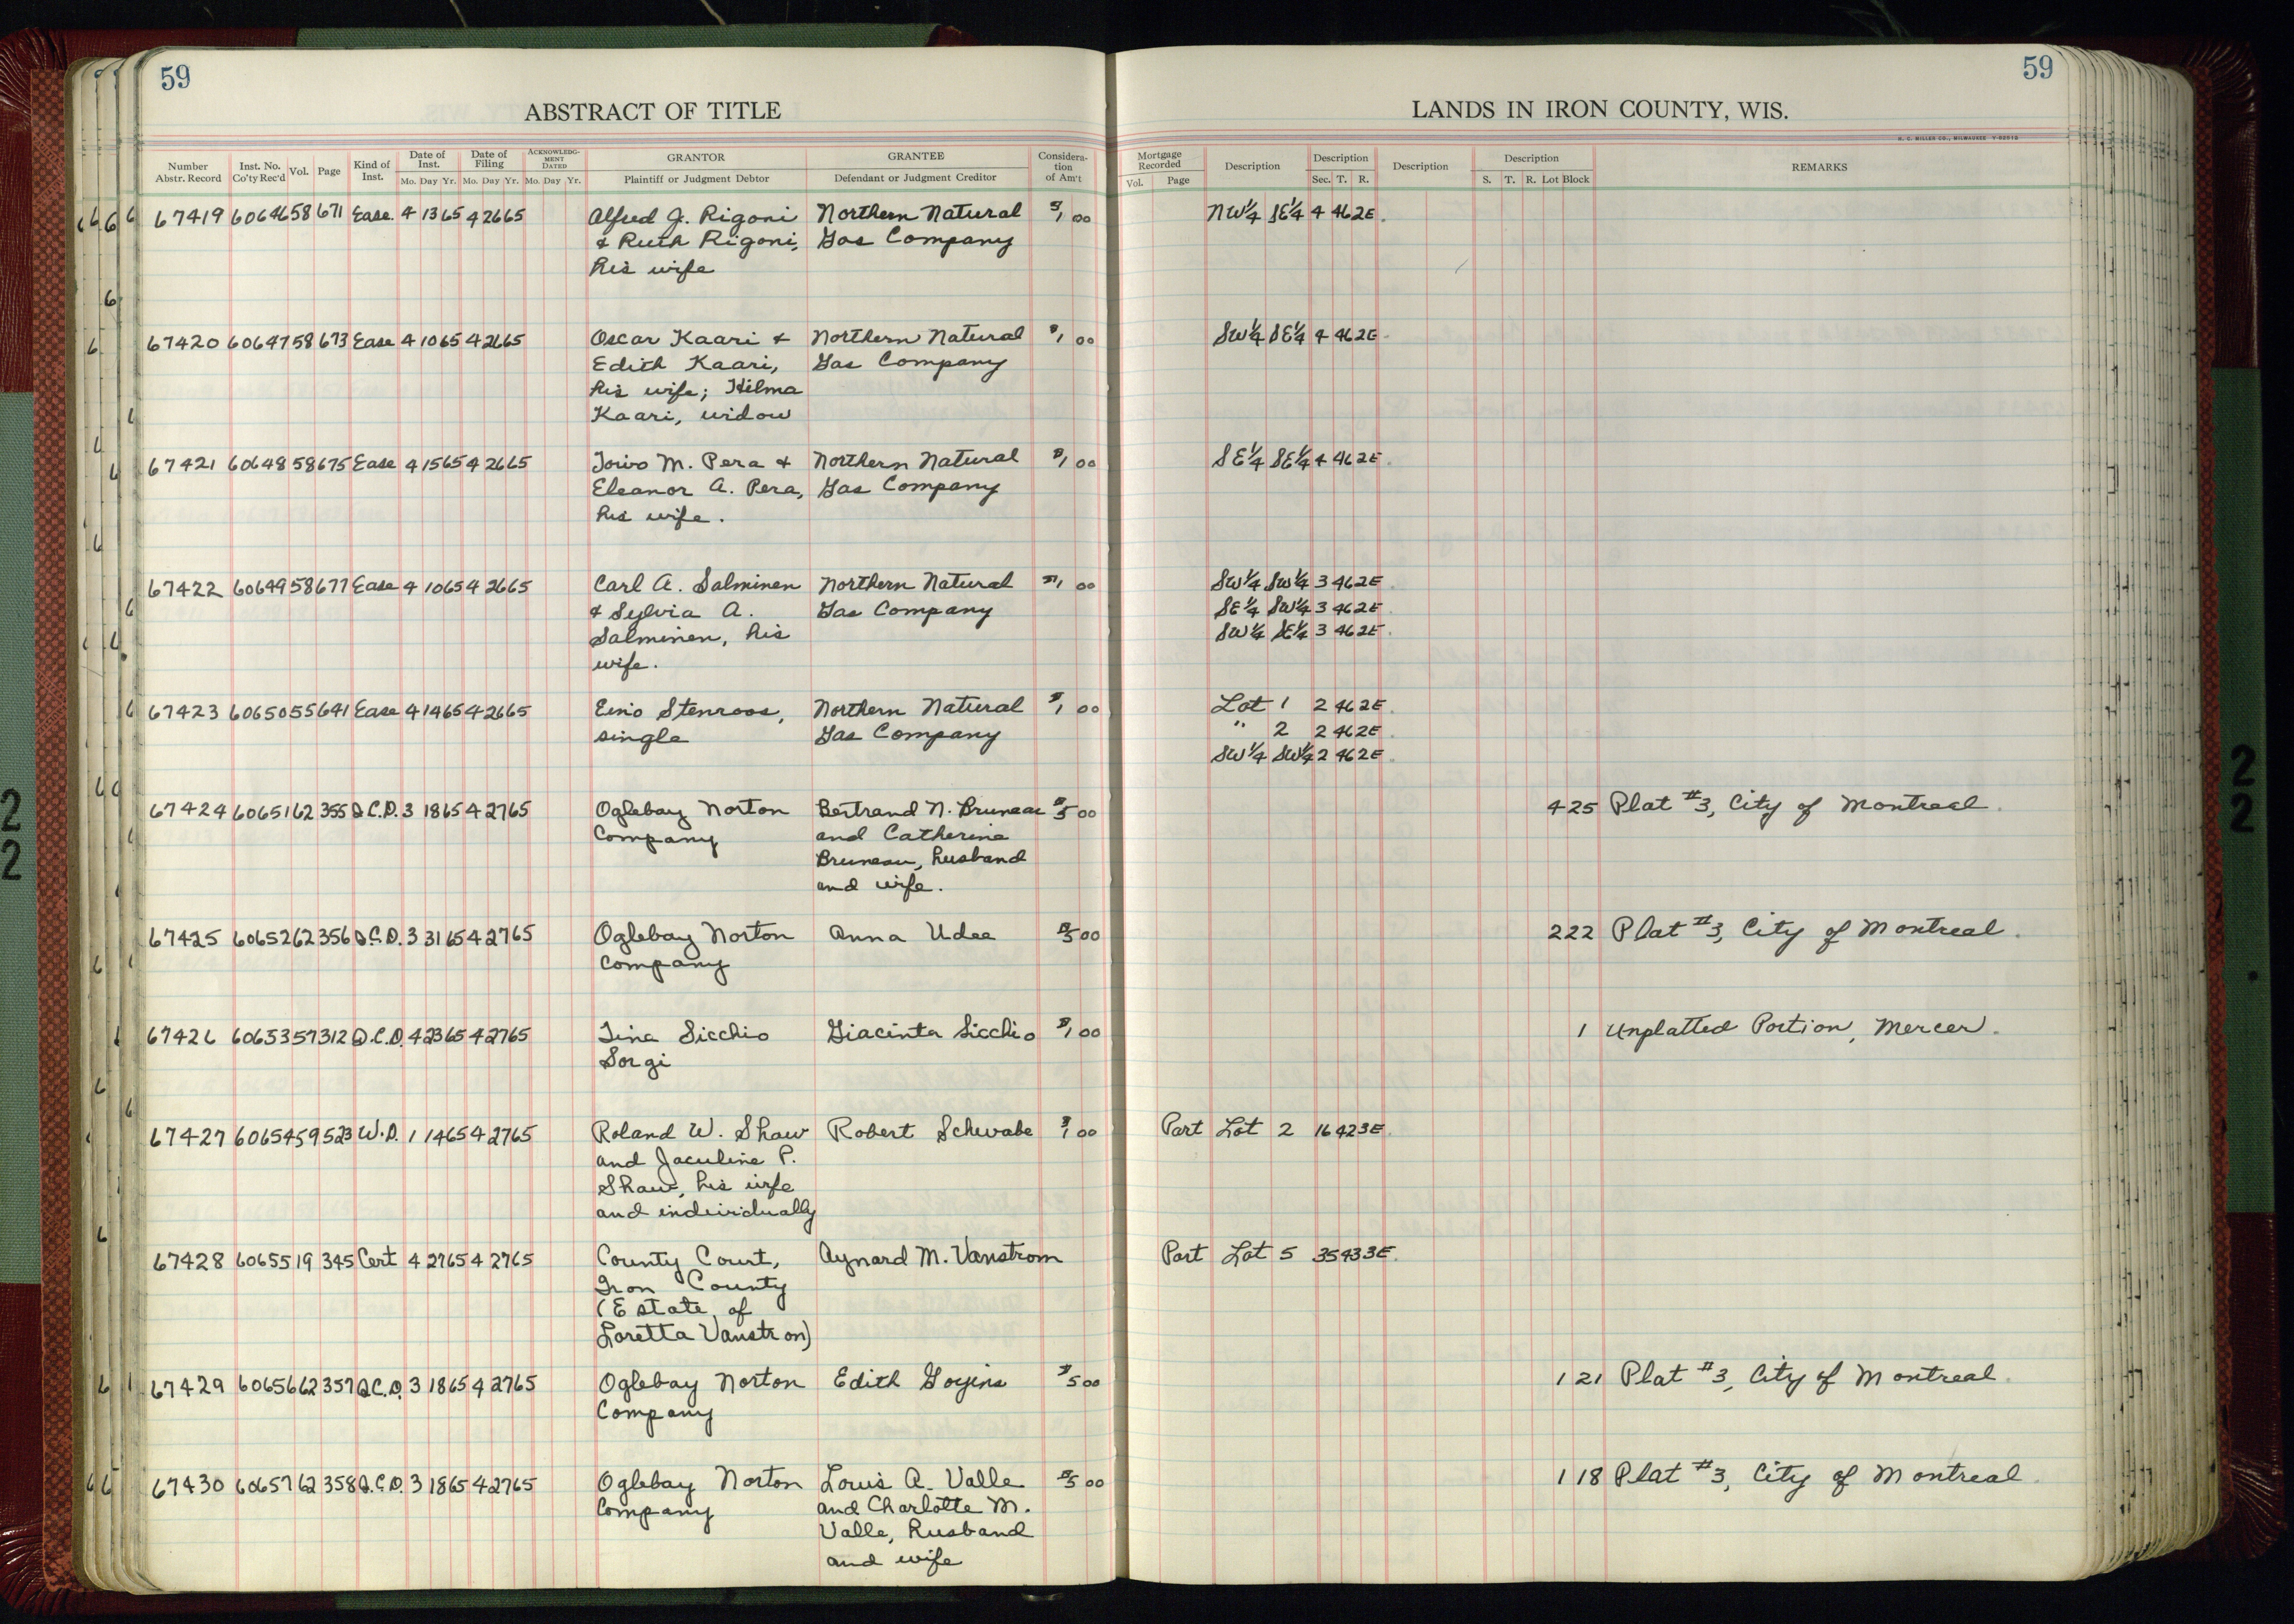 59
59
ABSTRACT OF TITLE
LANDS IN IRON COUNTY, WIS.
H. C. MILLER CO., MILWAUKEE
Number Abstr. Record | Inst. No. Co'ty Rec'd | Vol. | Page | Kind of Inst. | Date of Inst. Mo. Day Yr. | Date of Filing Mo. Day Yr. | ACKNOWLEDGMENT DATED Mo. Day Yr. | GRANTOR Plaintiff or Judgment Debtor | GRANTEE Defendant or Judgment Creditor | Consideration of Am't | Mortgage Recorded Vol. Page | Description | Description Sec. T. R. | Description | Description S. T. R. Lot Block | REMARKS
67419 60646 58 671 Ease. 4 13 65 4 26 65 Alfred J. Rigoni Northern Natural $1 00 NW¼ SE¼ 4 46 2E.
& Ruth Rigoni, Gas Company
his wife
67420 60647 58 673 Ease 4 10 65 4 26 65 Oscar Kaari & Northern Natural $1 00 SW¼ SE¼ 4 46 2E.
Edith Kaari, Gas Company
his wife; Hilma
Kaari, widow
67421 60648 58 675 Ease 4 15 65 4 26 65 Toivo M. Pera & Northern Natural $1 00 SE¼ SE¼ 4 46 2E.
Eleanor A. Pera, Gas Company
his wife.
67422 60649 58 677 Ease 4 10 65 4 26 65 Carl A. Salminen Northern Natural $1 00 SW¼ SW¼ 3 46 2E
& Sylvia A. Gas Company SE¼ SW¼ 3 46 2E
Salminen, his SW¼ SE¼ 3 46 2E.
wife.
67423 60650 55 641 Ease 4 14 65 4 26 65 Eino Stenroos, Northern Natural $1 00 Lot 1 2 46 2E.
single Gas Company " 2 2 46 2E
SW¼ SW¼ 2 46 2E
67424 60651 62 355 Q.C.D. 3 18 65 4 27 65 Oglebay Norton Bertrand N. Bruneau $5 00 4 25 Plat #3, City of Montreal.
Company and Catherine
Bruneau, husband
and wife.
67425 60652 62 356 Q.C.D. 3 31 65 4 27 65 Oglebay Norton Anna Udee $5 00 2 22 Plat #3, City of Montreal.
Company
67426 60653 57 312 Q.C.D. 4 23 65 4 27 65 Tina Sicchio Giacinta Sicchio $1 00 1 Unplatted Portion, Mercer.
Sorgi
67427 60654 59 523 W.D. 1 14 65 4 27 65 Roland W. Shaw Robert Schwabe $1 00 Part Lot 2 16 42 3E.
and Jaculine P.
Shaw, his wife
and individually
67428 60655 19 345 Cert 4 27 65 4 27 65 County Court, Aynard M. Vanstrom Part Lot 5 35 43 3E.
Iron County
(Estate of
Loretta Vanstron)
67429 60656 62 357 Q.C.D. 3 18 65 4 27 65 Oglebay Norton Edith Goyins $5 00 1 21 Plat #3, City of Montreal.
Company
67430 60657 62 358 Q.C.D. 3 18 65 4 27 65 Oglebay Norton Louis A. Valle $5 00 1 18 Plat #3, City of Montreal.
Company and Charlotte M.
Valle, husband
and wife